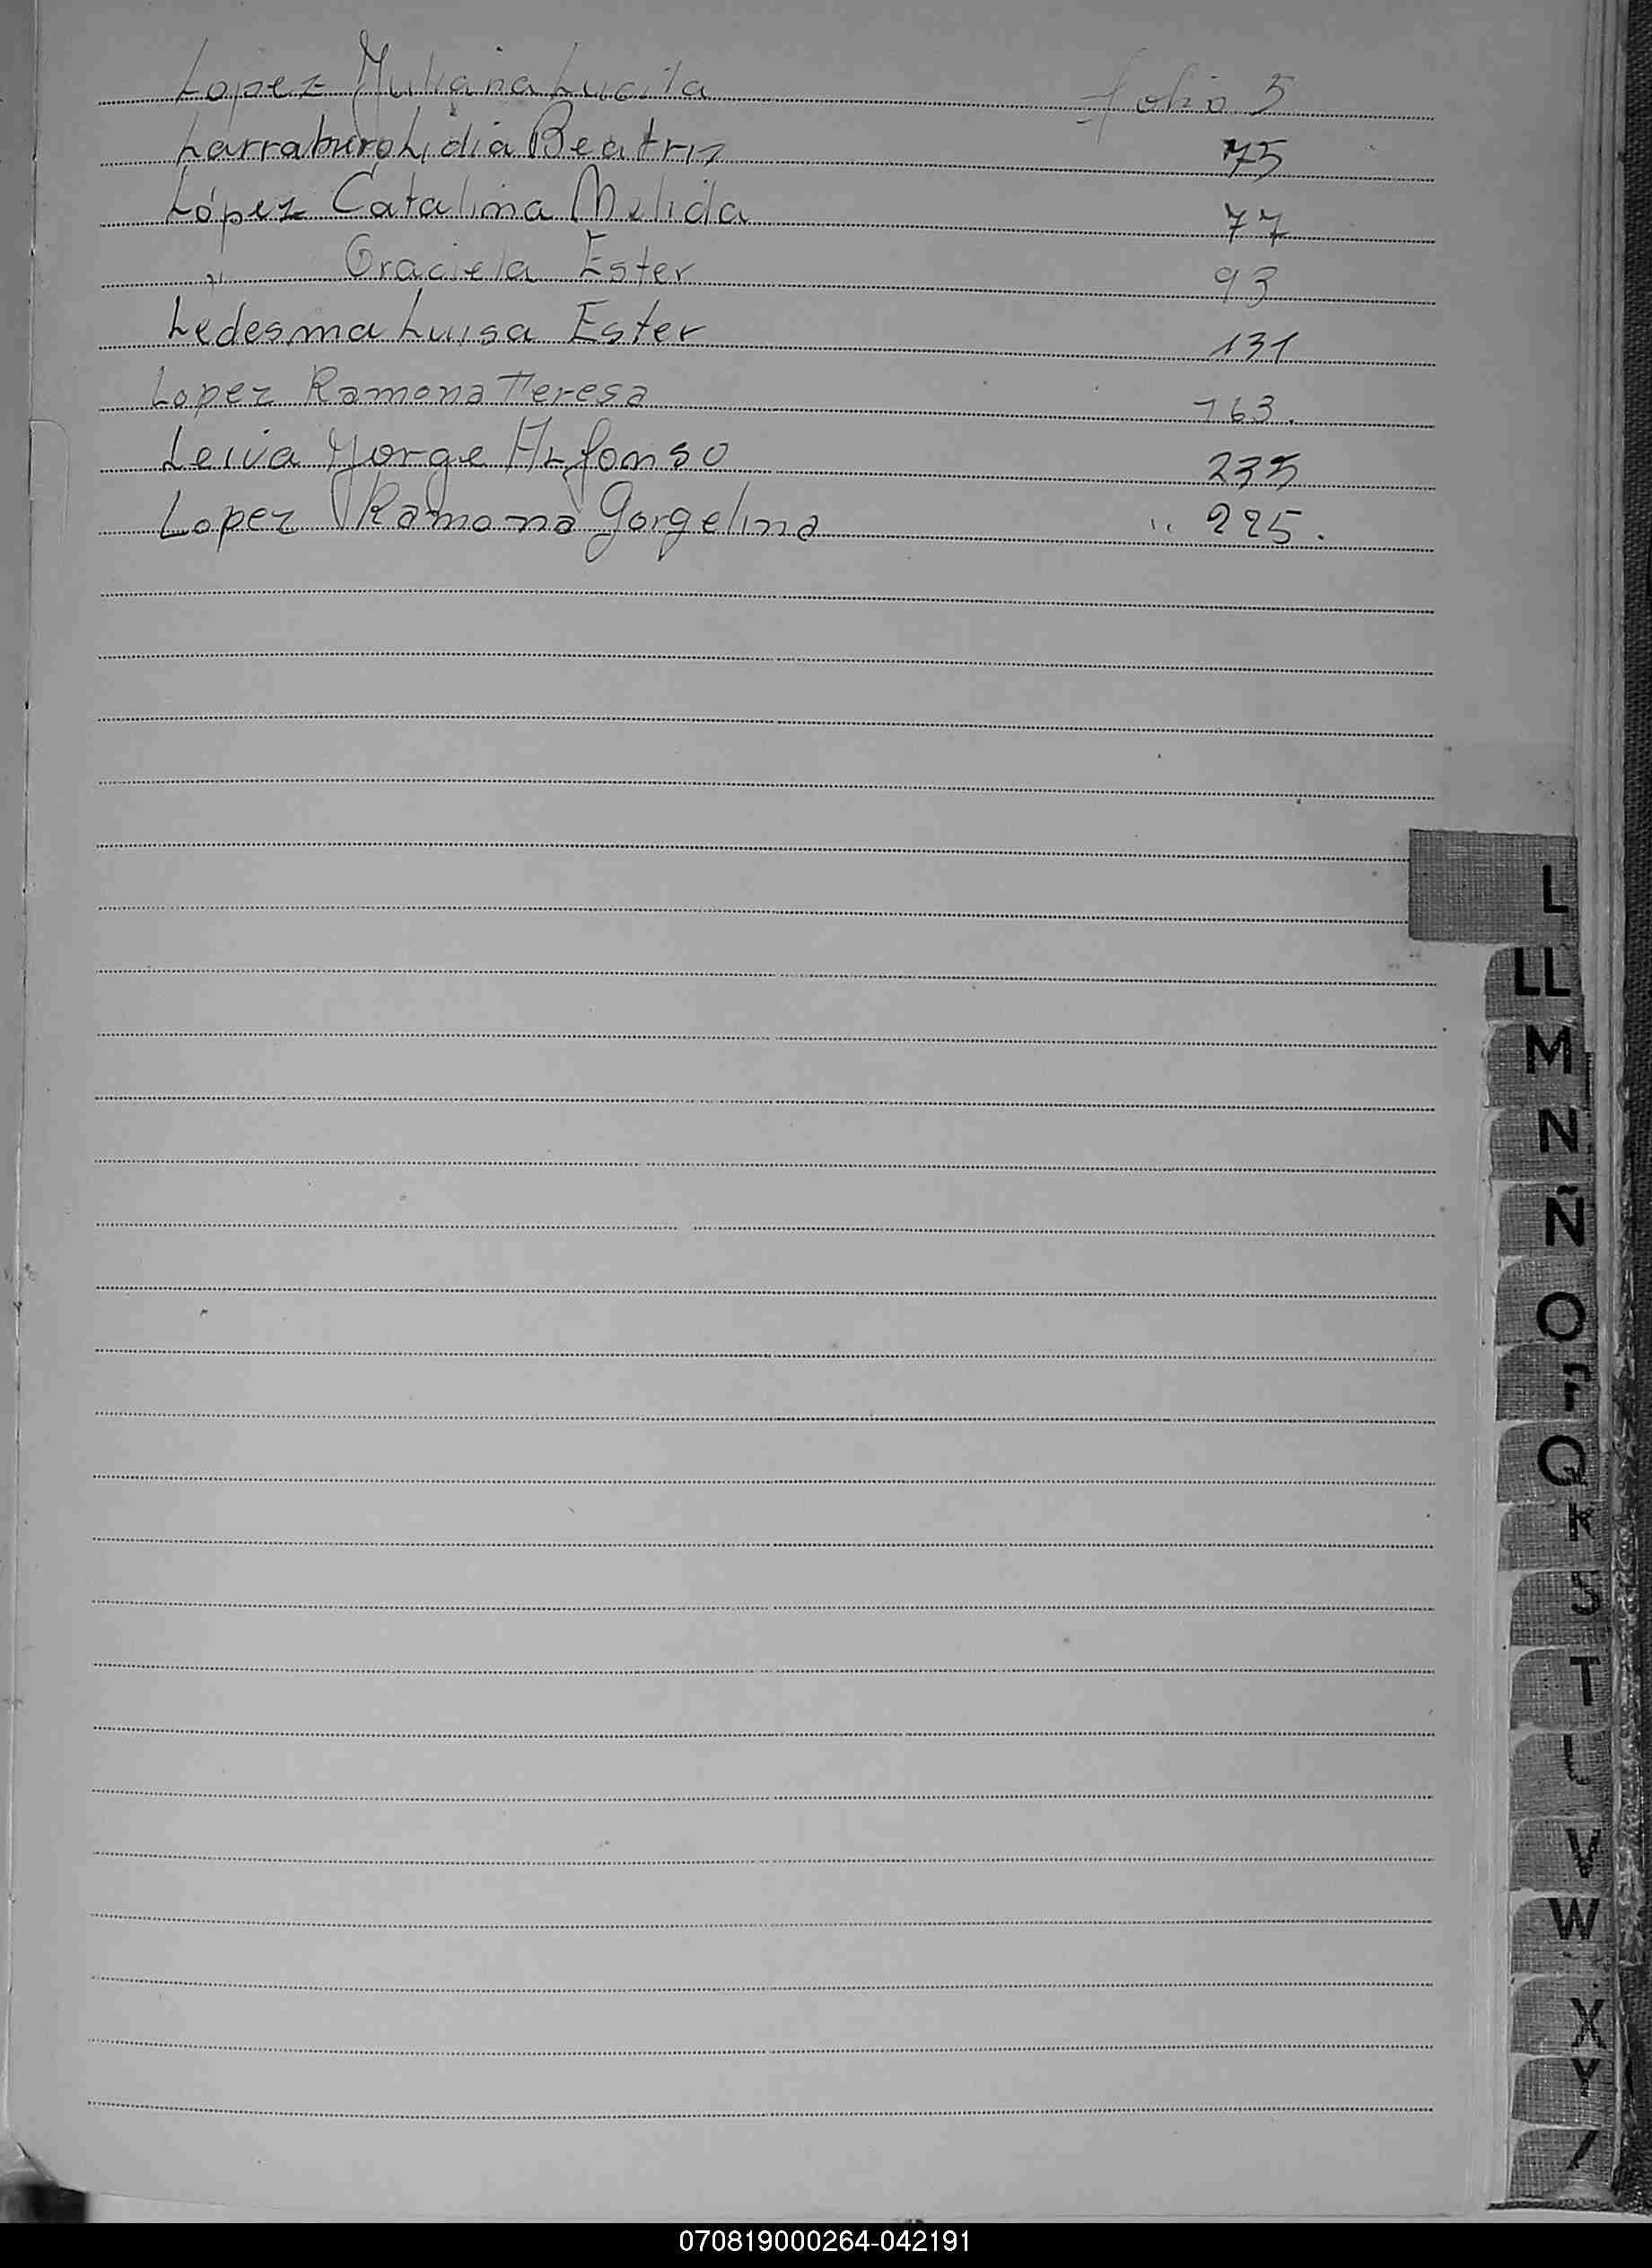 Lopez Juliana Lucila folio 5
Larraburo Lidia Beatriz 75
López Catalina Melida 77
" Graciela Ester 93
Ledesma Luisa Ester 131
Lopez Ramona Teresa 163.
Leiva Jorge Alfonso 235
Lopez Ramona Gorgelina " 225.
L
LL
M
N
Ñ
O
P
Q
R
S
T
U
V
W
X
Y
070819000264-042191